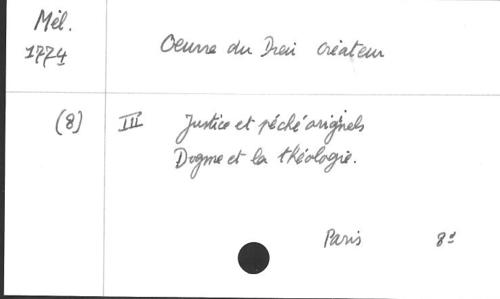 Mél.
1774
Oeuvre du Dieu créateur
(8) III Justice et péché originels
Dogme et la théologie.
Paris 8°